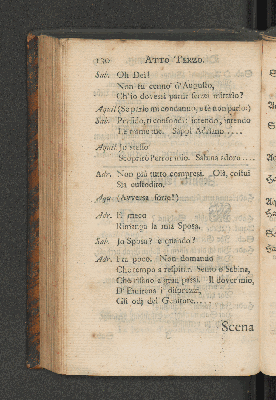 130 ATTO TERZO.
Sab. Oh Dei!
Non fu cenno d'Augusto,
Ch'io dovessi partir senza mirarlo?
Aquil. (Se parlo mi condanno, e se non parlo)
Sab. Perfido, ti confondi: intendo, intendo
Le trame tue. Sappi Adriano....
Aquil. Io stesso
Scoprirò l'error mio. Sabina adoro....
Adr. Non più tutto compresi. Olà, costui
Sia custodito.
Aqu. (Avversa sorte!)
Adr. E meco
Rimanga la mia Sposa.
Sab. Io Sposa? e quando?
Adr. Fra poco. Non domando
Che tempo a respirar. Sento o Sabina,
Che risano a gran passi. Il dover mio,
D'Emirena i disprezzi,
Gli odj del Genitore.....
Scena